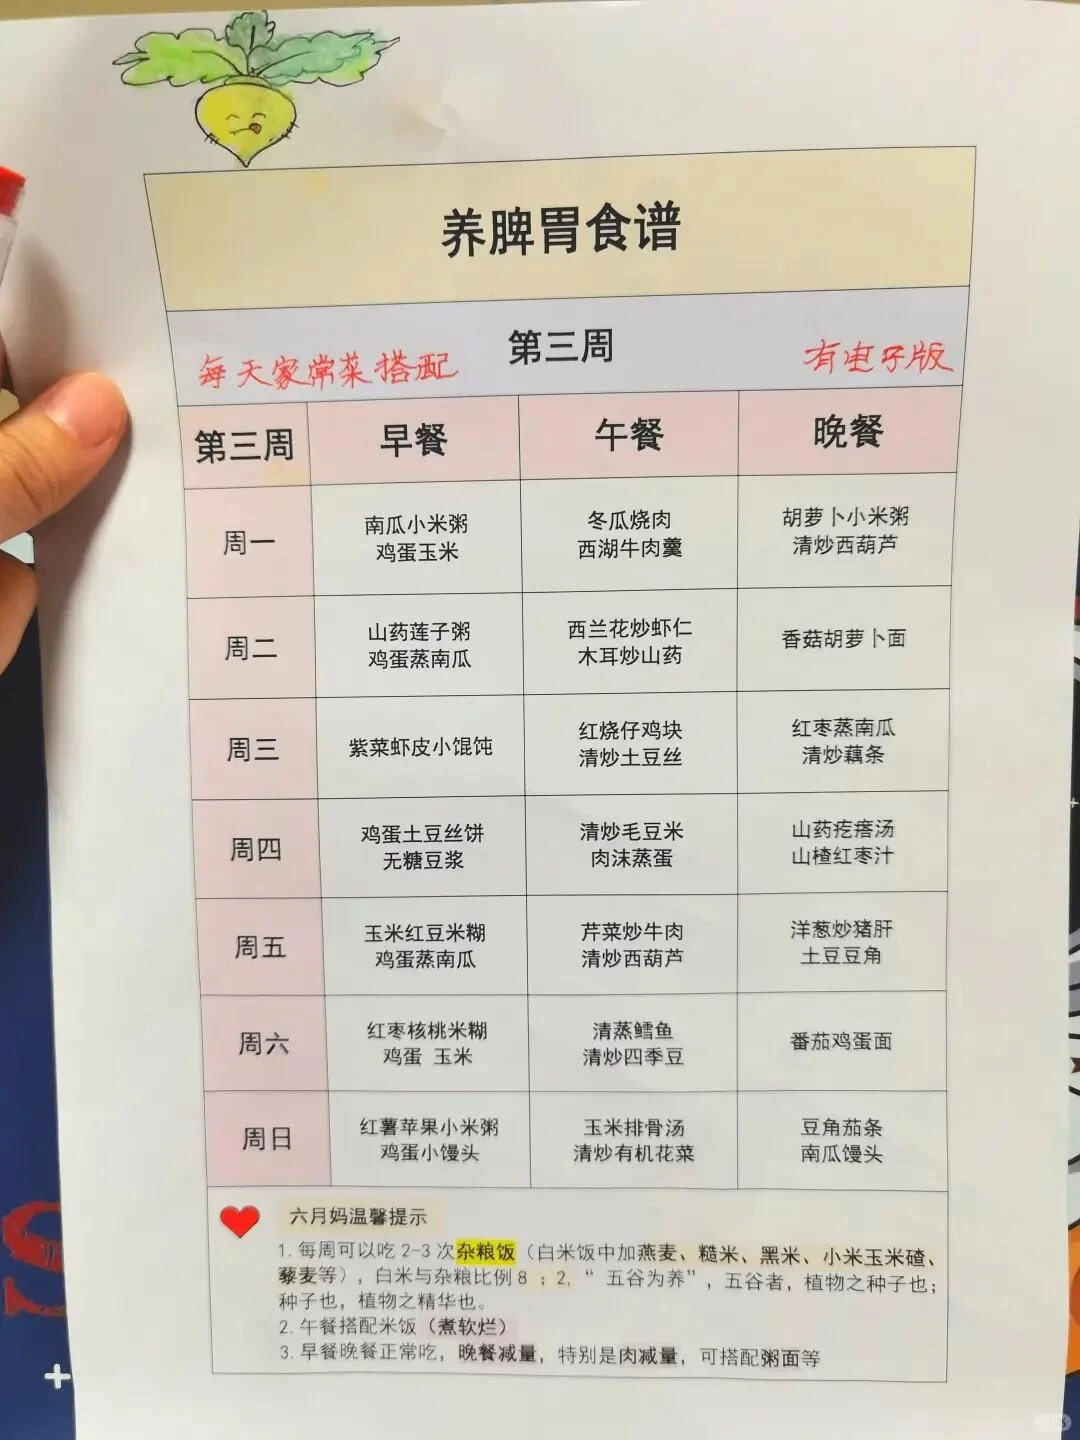 养脾胃食谱
第三周
每天家常菜搭配
有电子版
第三周 早餐 午餐 晚餐
周一
南瓜小米粥
鸡蛋玉米
冬瓜烧肉
西湖牛肉羹
胡萝卜小米粥
清炒西葫芦
周二
山药莲子粥
鸡蛋蒸南瓜
西兰花炒虾仁
木耳炒山药
香菇胡萝卜面
周三
紫菜虾皮小馄饨
红烧仔鸡块
清炒土豆丝
红枣蒸南瓜
清炒藕条
周四
鸡蛋土豆丝饼
无糖豆浆
清炒毛豆米
肉沫蒸蛋
山药疙瘩汤
山楂红枣汁
周五
玉米红豆米糊
鸡蛋蒸南瓜
芹菜炒牛肉
清炒西葫芦
洋葱炒猪肝
土豆豆角
周六
红枣核桃米糊
鸡蛋 玉米
清蒸鳕鱼
清炒四季豆
番茄鸡蛋面
周日
红薯苹果小米粥
鸡蛋小馒头
玉米排骨汤
清炒有机花菜
豆角茄条
南瓜馒头
六月妈温馨提示
1. 每周可以吃 2-3 次杂粮饭（白米饭中加燕麦、糙米、黑米、小米玉米碴、
藜麦等），白米与杂粮比例 8 : 2，“ 五谷为养”，五谷者，植物之种子也；
种子也，植物之精华也。
2. 午餐搭配米饭（煮软烂）
3. 早餐晚餐正常吃，晚餐减量，特别是肉减量，可搭配粥面等